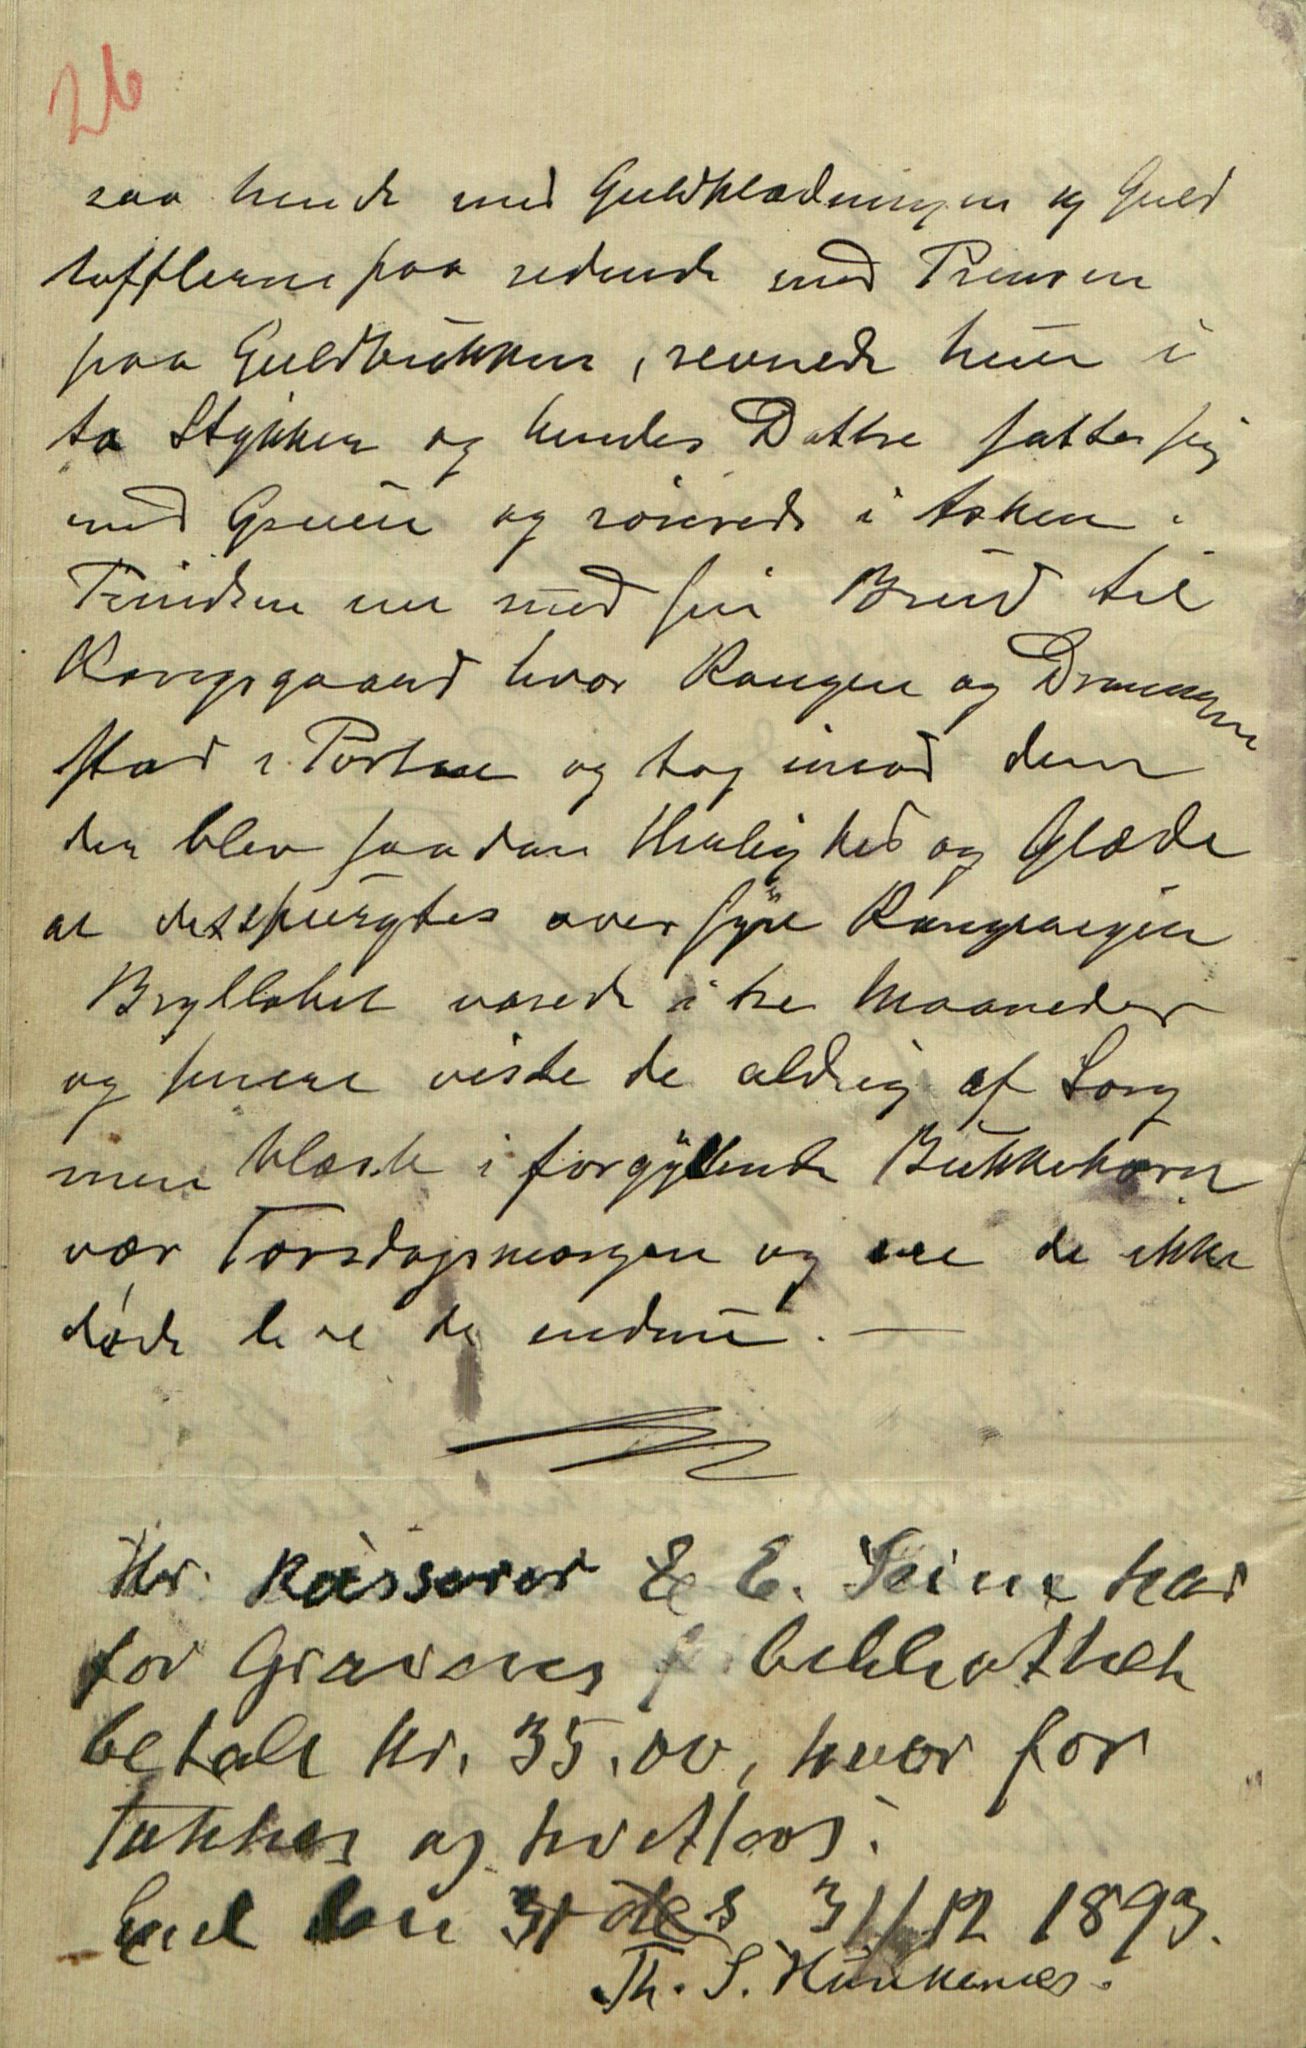 26
saa hende med Guldklædningen og Guld
tøfflerne paa ridende med Prinsen
paa Guldbukken, revnede hun i
to Stykker og hendes Datter satte sig
med Gruen og rørede i Asken.
nu med sin Brud til
Kongsgaard hvor Kongen og Dronningen
stod i Porten og tog imod dem
der blev saadan Herlighed og Glæde
at det spurgtes over syv Kongeriger
Brylluppet varede i tre Maaneder
og senere viste de aldrig af Sorg
men blæste i forgyllende Bukkehorn
vær Torsdagsmorgen og ere de ikke
døde leve de endnu. —
Hr. Kasserer E. E. har
for bibliothek
betalt kr. 35.00, hvor for
takkes og kvitteres.
den 31 des 31/12 1893.
Th. S.